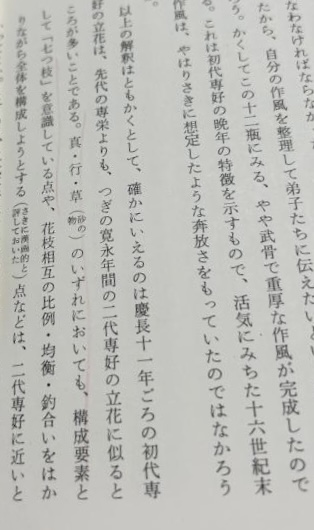 なわなければならなか
たから、自分の作風を整理して弟子たちに伝えたいとい
う。かくしてこの十二瓶にみる、やや武骨で重厚な作風が完成したので
る。これは初代専好の晩年の特徴を示すもので、活気にみちた十六世紀末
作風は、やはりさきに想定したような奔放さをもっていたのではなかろう
。
以上の解釈はともかくとして、確かにいえるのは慶長十一年ごろの初代専
好の立花は、先代の専栄よりも、つぎの寛永年間の二代専好の立花に似ると
ころが多いことである。真・行・草（砂の物）のいずれにおいても、構成要素と
して「七つ枝」を意識している点や、花枝相互の比例・均衡・釣合いをはか
りながら全体を構成しようとする（さきに漢画的と評しておいた）点などは、二代専好に近いと